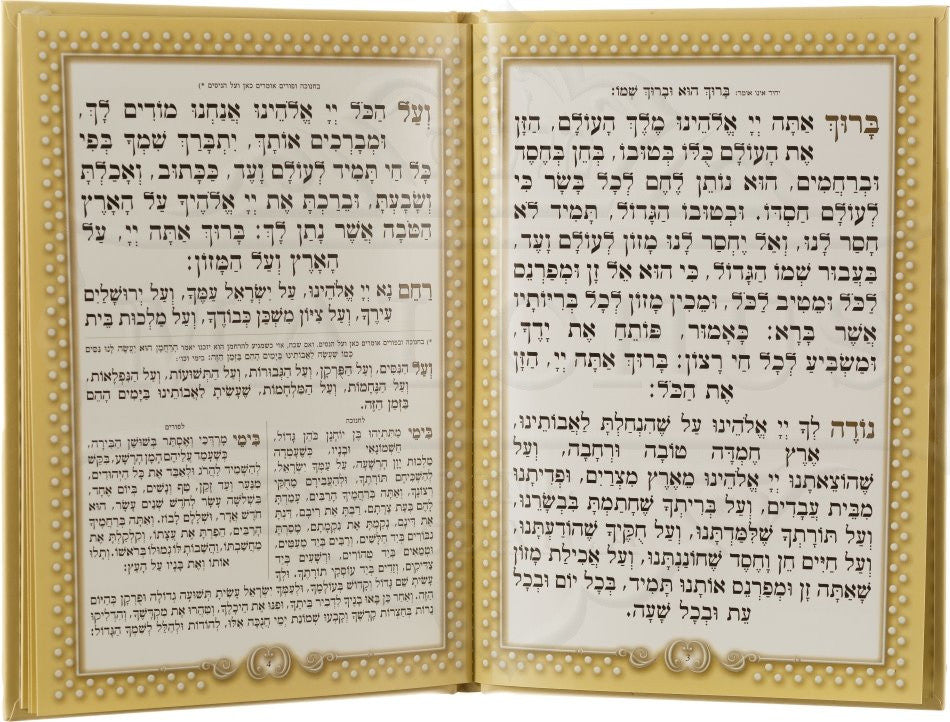 יחיד אינו אומר: בָּרוּךְ הוּא וּבָרוּךְ שְׁמוֹ:
בָּרוּךְ אַתָּה יְיָ אֱלֹהֵינוּ מֶלֶךְ הָעוֹלָם, הַזָּן
אֶת הָעוֹלָם כֻּלּוֹ בְּטוּבוֹ, בְּחֵן בְּחֶסֶד
וּבְרַחֲמִים, הוּא נוֹתֵן לֶחֶם לְכָל בָּשָׂר כִּי
לְעוֹלָם חַסְדּוֹ. וּבְטוּבוֹ הַגָּדוֹל, תָּמִיד לֹא
חָסַר לָנוּ, וְאַל יֶחְסַר לָנוּ מָזוֹן לְעוֹלָם וָעֶד,
בַּעֲבוּר שְׁמוֹ הַגָּדוֹל, כִּי הוּא אֵל זָן וּמְפַרְנֵס
לַכֹּל וּמֵטִיב לַכֹּל, וּמֵכִין מָזוֹן לְכָל בְּרִיּוֹתָיו
אֲשֶׁר בָּרָא: כָּאָמוּר, פּוֹתֵחַ אֶת יָדֶךָ,
וּמַשְׂבִּיעַ לְכָל חַי רָצוֹן: בָּרוּךְ אַתָּה יְיָ, הַזָּן
אֶת הַכֹּל:
נוֹדֶה לְךָ יְיָ אֱלֹהֵינוּ עַל שֶׁהִנְחַלְתָּ לַאֲבוֹתֵינוּ,
אֶרֶץ חֶמְדָּה טוֹבָה וּרְחָבָה, וְעַל
שֶׁהוֹצֵאתָנוּ יְיָ אֱלֹהֵינוּ מֵאֶרֶץ מִצְרַיִם, וּפְדִיתָנוּ
מִבֵּית עֲבָדִים, וְעַל בְּרִיתְךָ שֶׁחָתַמְתָּ בִּבְשָׂרֵנוּ,
וְעַל תּוֹרָתְךָ שֶׁלִּמַּדְתָּנוּ, וְעַל חֻקֶּיךָ שֶׁהוֹדַעְתָּנוּ,
וְעַל חַיִּים חֵן וָחֶסֶד שֶׁחוֹנַנְתָּנוּ, וְעַל אֲכִילַת מָזוֹן
שָׁאַתָּה זָן וּמְפַרְנֵס אוֹתָנוּ תָּמִיד, בְּכָל יוֹם וּבְכָל
עֵת וּבְכָל שָׁעָה.
3
בחנוכה ופורים אומרים כאן ועל הניסים *)
וְעַל הַכֹּל יְיָ אֱלֹהֵינוּ אֲנַחְנוּ מוֹדִים לָךְ,
וּמְבָרְכִים אוֹתָךְ, יִתְבָּרַךְ שִׁמְךָ בְּפִי
כָּל חַי תָּמִיד לְעוֹלָם וָעֶד, כַּכָּתוּב, וְאָכַלְתָּ
וְשָׂבָעְתָּ, וּבֵרַכְתָּ אֶת יְיָ אֱלֹהֶיךָ עַל הָאָרֶץ
הַטֹּבָה אֲשֶׁר נָתַן לָךְ: בָּרוּךְ אַתָּה יְיָ, עַל
הָאָרֶץ וְעַל הַמָּזוֹן:
רַחֵם נָא יְיָ אֱלֹהֵינוּ, עַל יִשְׂרָאֵל עַמֶּךָ, וְעַל יְרוּשָׁלַיִם
עִירֶךָ, וְעַל צִיּוֹן מִשְׁכַּן כְּבוֹדֶךָ, וְעַל מַלְכוּת בֵּית
*) בחנוכה ובפורים אומרים כאן ועל הנסים. ואם שכח, אזי כשמגיע להרחמן הוא יזכנו יאמר הָרַחֲמָן הוּא יַעֲשֶׂה לָנוּ נִסִּים
כְּמוֹ שֶׁעָשָׂה לַאֲבוֹתֵינוּ בַּיָּמִים הָהֵם בַּזְּמַן הַזֶּה: בימי וכו':
וְעַל הַנִּסִּים, וְעַל הַפֻּרְקָן, וְעַל הַגְּבוּרוֹת, וְעַל הַתְּשׁוּעוֹת, וְעַל הַנִּפְלָאוֹת,
וְעַל הַנֶּחָמוֹת, וְעַל הַמִּלְחָמוֹת, שֶׁעָשִׂיתָ לַאֲבוֹתֵינוּ בַּיָּמִים הָהֵם
בַּזְּמַן הַזֶּה.
לחנוכה
בִּימֵי מַתִּתְיָהוּ בֶּן יוֹחָנָן כֹּהֵן גָּדוֹל,
חַשְׁמוֹנָאִי וּבָנָיו, כְּשֶׁעָמְדָה
מַלְכוּת יָוָן הָרְשָׁעָה, עַל עַמְּךָ יִשְׂרָאֵל,
לְהַשְׁכִּיחָם תּוֹרָתֶךָ, וּלְהַעֲבִירָם מֵחֻקֵּי
רְצוֹנֶךָ, וְאַתָּה בְּרַחֲמֶיךָ הָרַבִּים, עָמַדְתָּ
לָהֶם בְּעֵת צָרָתָם. רַבְתָּ אֶת רִיבָם, דַּנְתָּ
אֶת דִּינָם, נָקַמְתָּ אֶת נִקְמָתָם, מָסַרְתָּ
גִבּוֹרִים בְּיַד חַלָּשִׁים, וְרַבִּים בְּיַד מְעַטִּים,
וּטְמֵאִים בְּיַד טְהוֹרִים, וּרְשָׁעִים בְּיַד
צַדִּיקִים, וְזֵדִים בְּיַד עוֹסְקֵי תוֹרָתֶךָ. וּלְךָ
לפורים
בִּימֵי מָרְדְּכַי וְאֶסְתֵּר בְּשׁוּשַׁן הַבִּירָה,
כְּשֶׁעָמַד עֲלֵיהֶם הָמָן הָרָשָׁע, בִּקֵּשׁ
לְהַשְׁמִיד לַהֲרֹג וּלְאַבֵּד אֶת כָּל הַיְּהוּדִים,
מִנַּעַר וְעַד זָקֵן, טַף וְנָשִׁים, בְּיוֹם אֶחָד,
בִּשְׁלֹשָׁה עָשָׂר לְחֹדֶשׁ שְׁנֵים עָשָׂר, הוּא
חֹדֶשׁ אֲדָר, וּשְׁלָלָם לָבוֹז. וְאַתָּה בְּרַחֲמֶיךָ
הָרַבִּים, הֵפַרְתָּ אֶת עֲצָתוֹ, וְקִלְקַלְתָּ אֶת
מַחֲשַׁבְתּוֹ, וַהֲשֵׁבוֹתָ לּוֹ גְּמוּלוֹ בְּרֹאשׁוֹ, וְתָלוּ
אוֹתוֹ וְאֶת בָּנָיו עַל הָעֵץ:
עָשִׂיתָ שֵׁם גָּדוֹל וְקָדוֹשׁ בְּעוֹלָמֶךָ, וּלְעַמְּךָ יִשְׂרָאֵל עָשִׂיתָ תְּשׁוּעָה גְדוֹלָה וּפֻרְקָן כְּהַיּוֹם
הַזֶּה. וְאַחַר כֵּן בָּאוּ בָנֶיךָ לִדְבִיר בֵּיתֶךָ, וּפִנּוּ אֶת הֵיכָלֶךָ, וְטִהֲרוּ אֶת מִקְדָּשֶׁךָ, וְהִדְלִיקוּ
נֵרוֹת בְּחַצְרוֹת קָדְשֶׁךָ, וְקָבְעוּ שְׁמוֹנַת יְמֵי חֲנֻכָּה אֵלּוּ, לְהוֹדוֹת וּלְהַלֵּל לְשִׁמְךָ הַגָּדוֹל:
4